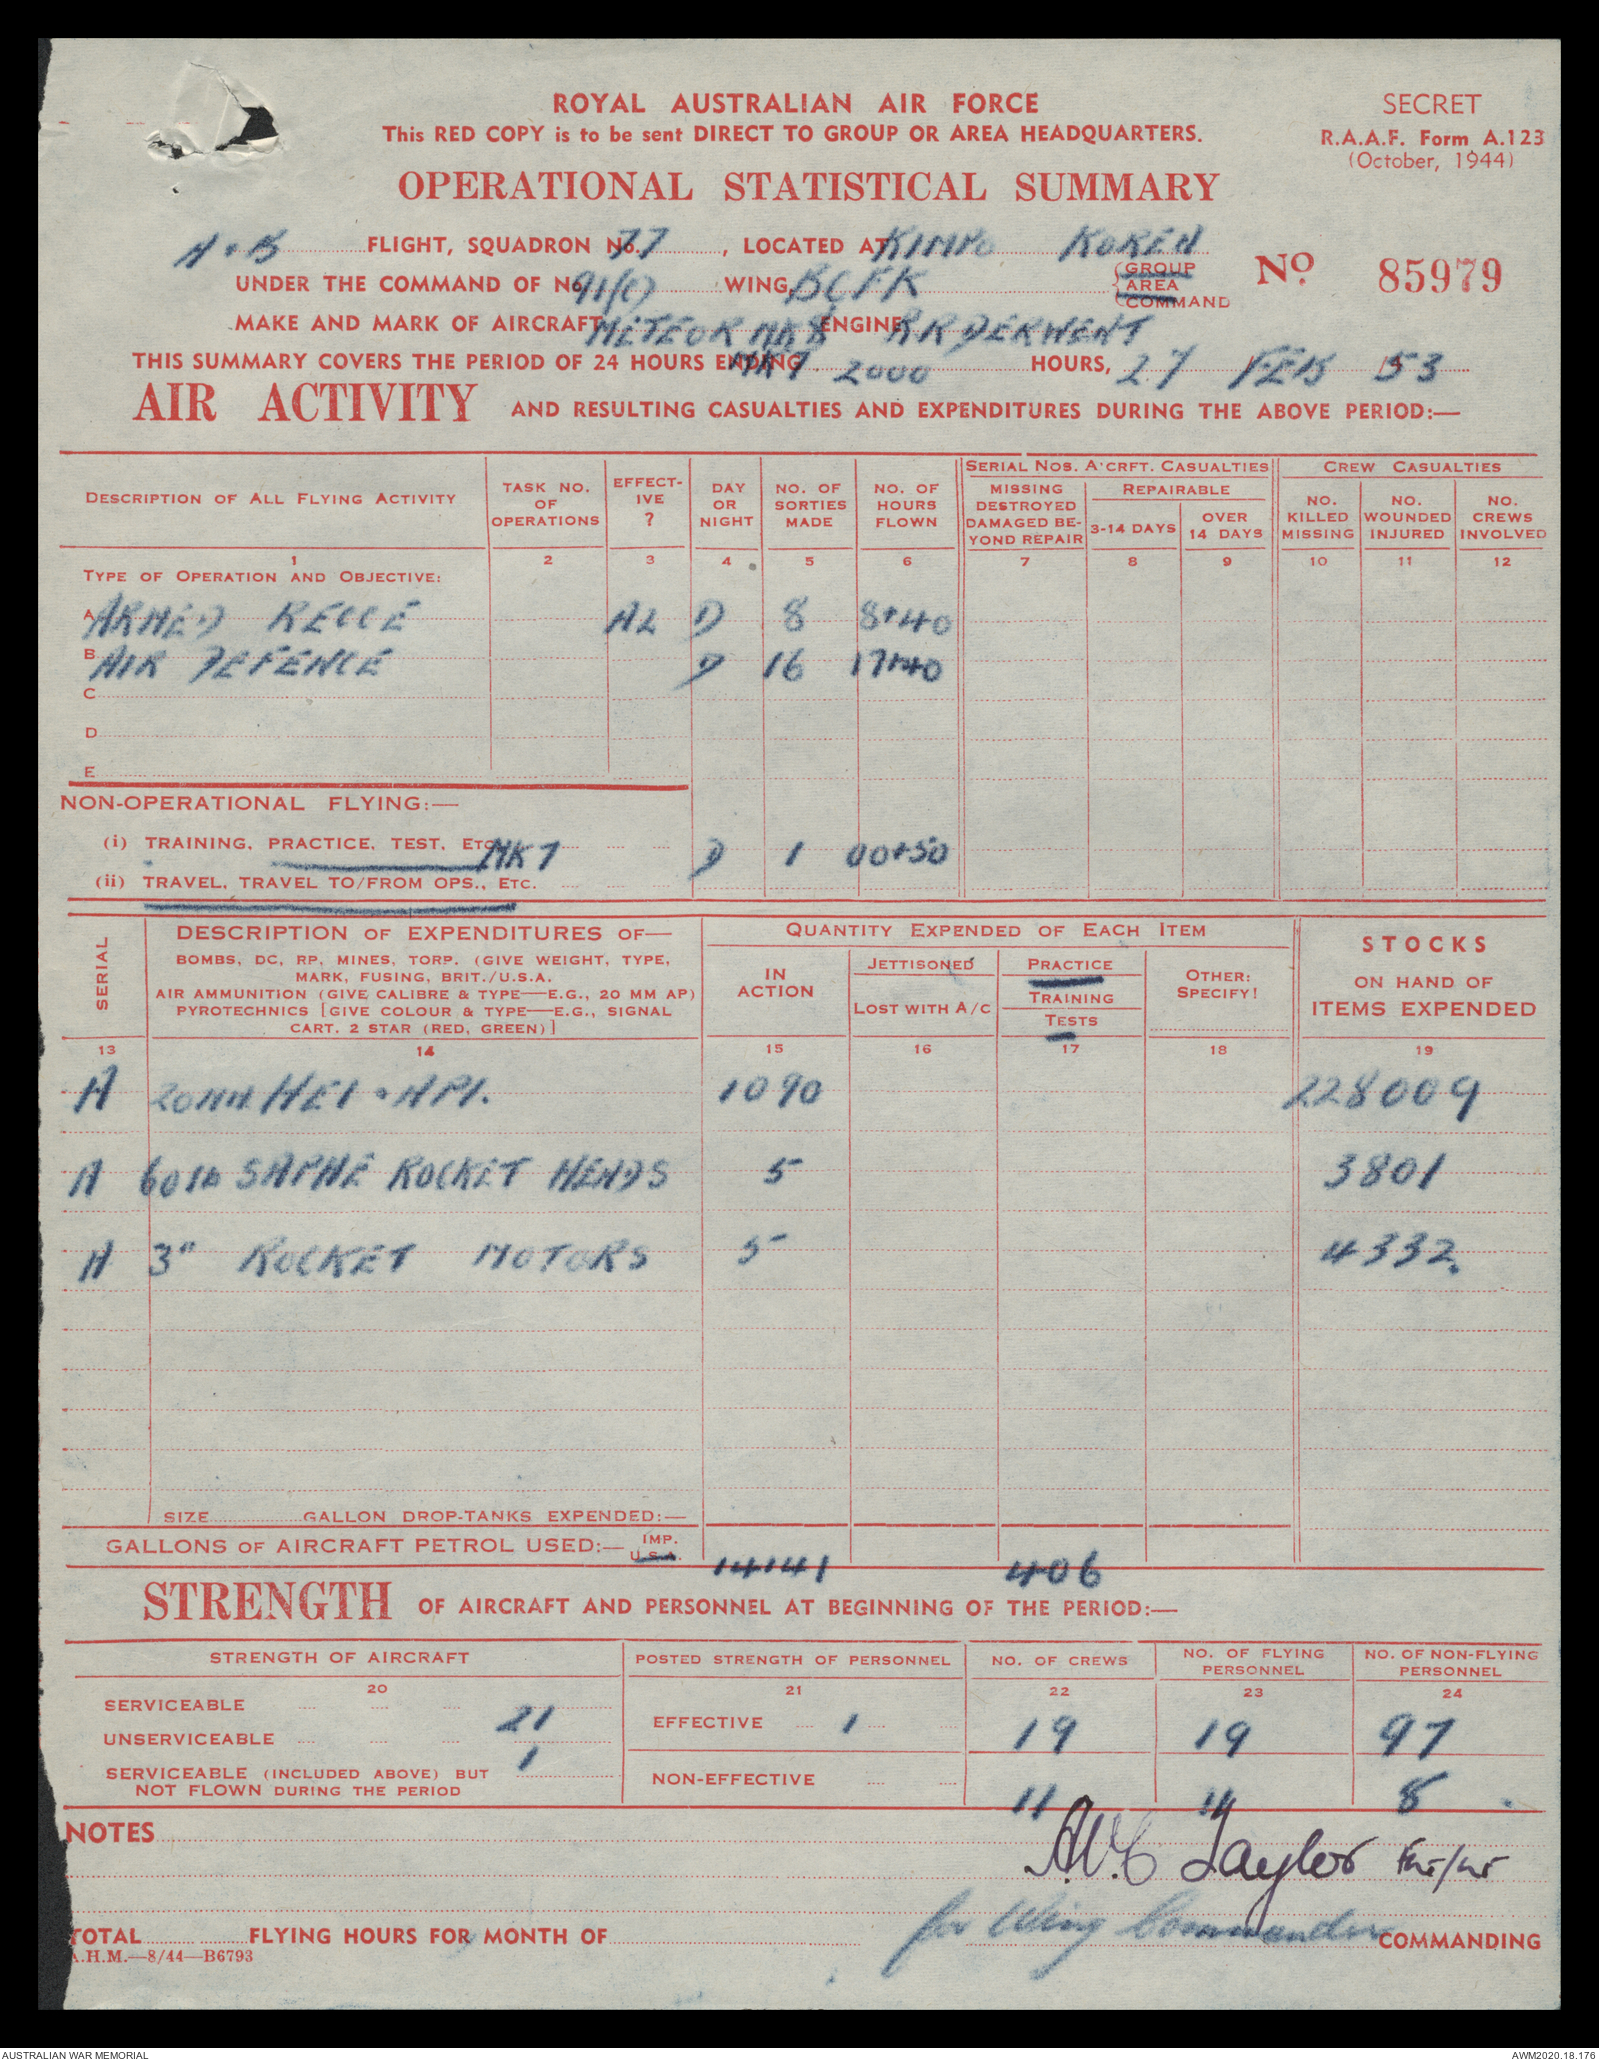 ROYAL AUSTRALIAN AIR FORCE
This RED COPY is to be sent DIRECT TO GROUP OR AREA HEADQUARTERS.
SECRET
R.A.A.F. Form A.123
(October, 1944)
OPERATIONAL STATISTICAL SUMMARY
A + B FLIGHT, SQUADRON No. 77, LOCATED AT KIMPO KOREA
UNDER THE COMMAND OF No. 91(C) WING, BCFK {GROUP AREA COMMAND
No. 85979
MAKE AND MARK OF AIRCRAFT METEOR MK8 ENGINE RR DERWENT
THIS SUMMARY COVERS THE PERIOD OF 24 HOURS ENDING MK7 2000 HOURS, 27 / FEB / 53
AIR ACTIVITY AND RESULTING CASUALTIES AND EXPENDITURES DURING THE ABOVE PERIOD:—
DESCRIPTION OF ALL FLYING ACTIVITY
TASK NO. OF OPERATIONS
EFFECT-IVE ?
DAY OR NIGHT
NO. OF SORTIES MADE
NO. OF HOURS FLOWN
SERIAL NOS. A'CRFT. CASUALTIES
MISSING DESTROYED DAMAGED BE-YOND REPAIR
REPAIRABLE
3-14 DAYS
OVER 14 DAYS
CREW CASUALTIES
NO. KILLED MISSING
NO. WOUNDED INJURED
NO. CREWS INVOLVED
1 2 3 4 5 6 7 8 9 10 11 12
TYPE OF OPERATION AND OBJECTIVE:
A ARMED RECCE AL D 8 8+40
B AIR DEFENCE D 16 17+40
C
D
E
NON-OPERATIONAL FLYING:—
(i) TRAINING, PRACTICE, TEST, ETC. MK7 D 1 00+50
(ii) TRAVEL, TRAVEL TO/FROM OPS., ETC.
SERIAL
DESCRIPTION OF EXPENDITURES OF—
BOMBS, DC, RP, MINES, TORP. (GIVE WEIGHT, TYPE,
MARK, FUSING, BRIT./U.S.A.
AIR AMMUNITION (GIVE CALIBRE & TYPE—E.G., 20 MM AP)
PYROTECHNICS [GIVE COLOUR & TYPE—E.G., SIGNAL
CART. 2 STAR (RED, GREEN)]
QUANTITY EXPENDED OF EACH ITEM
IN ACTION
JETTISONED
LOST WITH A/C
PRACTICE
TRAINING
TESTS
OTHER: SPECIFY!
STOCKS
ON HAND OF
ITEMS EXPENDED
13 14 15 16 17 18 19
A 20MM HEI + API. 1090 228009
A 60 lb SAPHE ROCKET HEADS 5 3801
A 3" ROCKET MOTORS 5 4332.
SIZE GALLON DROP-TANKS EXPENDED:—
GALLONS OF AIRCRAFT PETROL USED:— IMP. U.S.A. 14141 406
STRENGTH OF AIRCRAFT AND PERSONNEL AT BEGINNING OF THE PERIOD:—
STRENGTH OF AIRCRAFT
POSTED STRENGTH OF PERSONNEL
NO. OF CREWS
NO. OF FLYING PERSONNEL
NO. OF NON-FLYING PERSONNEL
20 21 22 23 24
SERVICEABLE 21
EFFECTIVE 1 19 19 97
UNSERVICEABLE 1
SERVICEABLE (INCLUDED ABOVE) BUT
NOT FLOWN DURING THE PERIOD
NON-EFFECTIVE 11 11 8
NOTES
A.W.C Taylor Flt/Lt
for Wing Commander COMMANDING
TOTAL FLYING HOURS FOR MONTH OF
A.H.M.—8/44—B6793
AUSTRALIAN WAR MEMORIAL
AWM2020.18.176